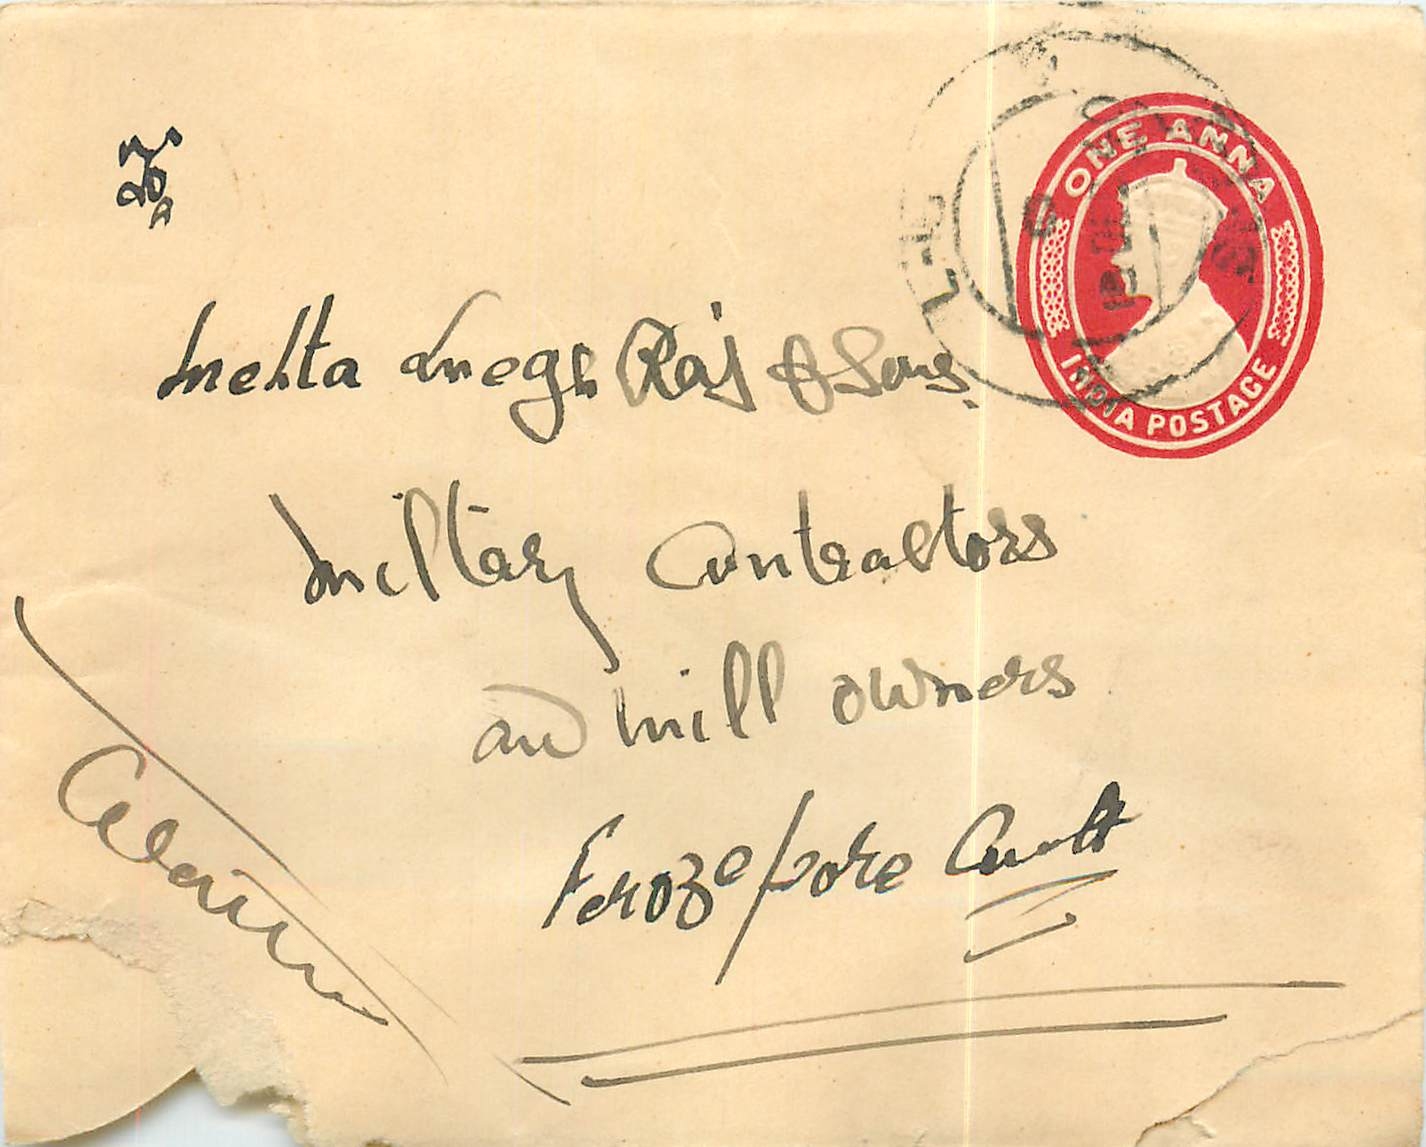 ONE ANNA
INDIA POSTAGE
Mehta Raj & Sons.
Military Contractors
and Mill owners
Ferozepore Cantt